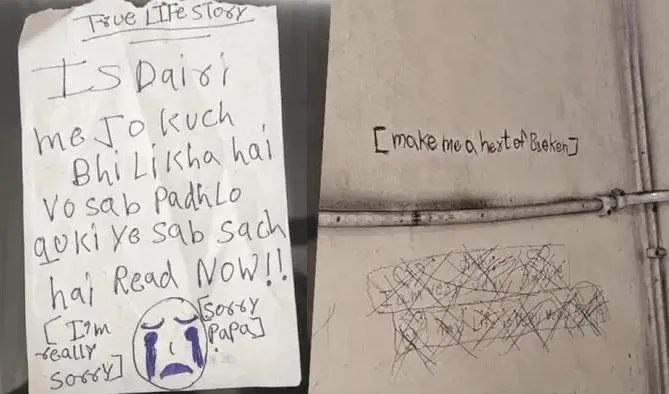 True LIFE STORY
Is Dairi
me Jo kuch
Bhi Likha hai
Vo sab Padhlo
quki ye sab sach
hai Read NOW!!
[I'm
really
sorry]
[Sorry
Papa]
[make me a hert of Broken]